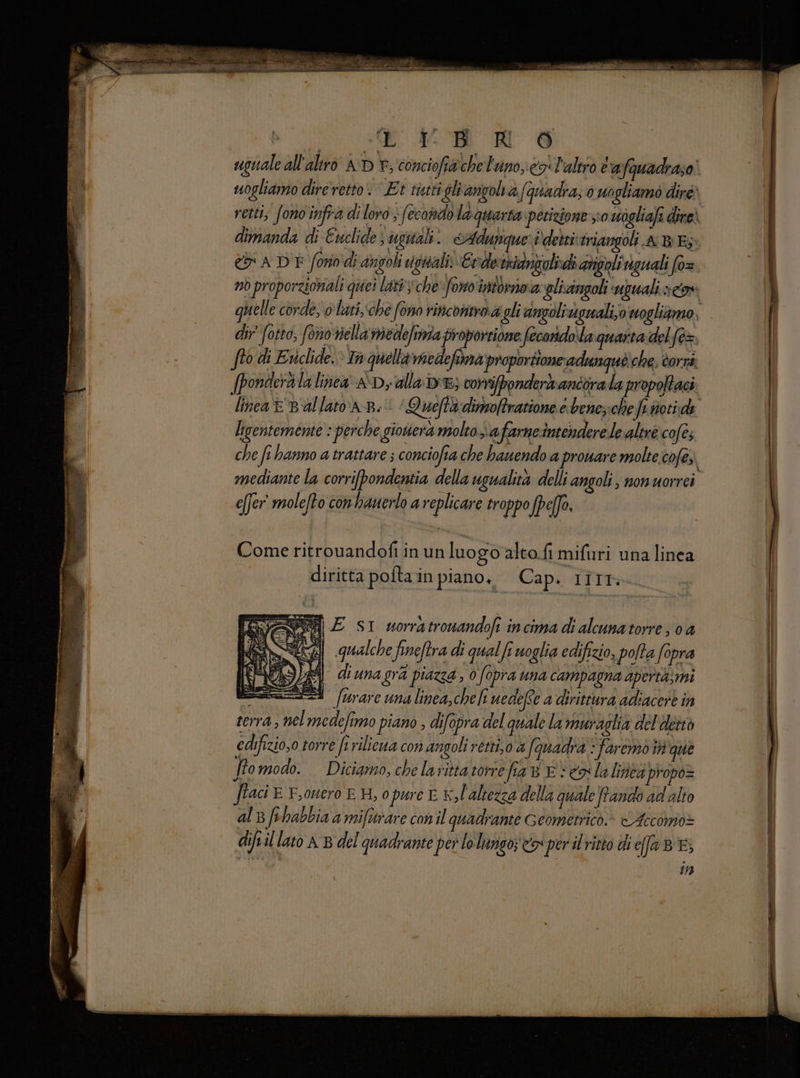 LIBRO
uguale all'altro A D F, conciosia che l'uno, & l'altro è a squadra, o
uogliamo dire retto. Et tutti gli angoli a squadra, o uogliamo dire
retti, sono infra di loro, secondo la quarta petizione, o uogliasi dire
dimanda di Euclide, uguali. Adunque i detti triangoli A B E,
& A D F sono di angoli uguali. Et de triangoli di angoli uguali so=
nò proporzionali quei lati, che sono intorno a gli angoli uguali, &
quelle corde, o lati, che sono rincontro a gli angoli uguali, o uogliamo
dir' sotto, sono nella medesima proportione secondo la quarta del se=
sto di Euclide. In quella medesima proportione adunque che corri
sponderà la linea A D, alla D E; corrisponderà ancora la propostaci
linea E B al lato A B. Questa dimostratione è bene, che si noti di
ligentemente: perche giouerà molto, a farne intendere le altre cose,
che si hanno a trattare; conciosia che hauendo a prouare molte cose,
mediante la corrispondentia della ugualità delli angoli, non uorrei
esser' molesto con hauerlo a replicare troppo spesso.
Come ritrouandosi in un luogo alto si misuri una linea
diritta posta in piano. Cap. IIII.
SE SI uorrà trouandosi in cima di alcuna torre, o a
qualche finestra di qual si uoglia edifizio, posta sopra
di una grã piazza, o sopra una campagna aperta, mi
surare una linea, che si uedesse a dirittura adiacere in
terra, nel medesimo piano, disopra del quale la muraglia del detto
edifizio, o torre si rilieua con angoli retti, o a squadra: faremo in que
sto modo. Diciamo, che la ritta torre sia B E: & la linea propo=
staci E F, ouero E H, o pure E K, l'altezza della quale stando ad alto
al B si habbia a misurare con il quadrante Geometrico. Accomo=
disi il lato A B del quadrante per lo lungo, & per il ritto di essa B E,
in